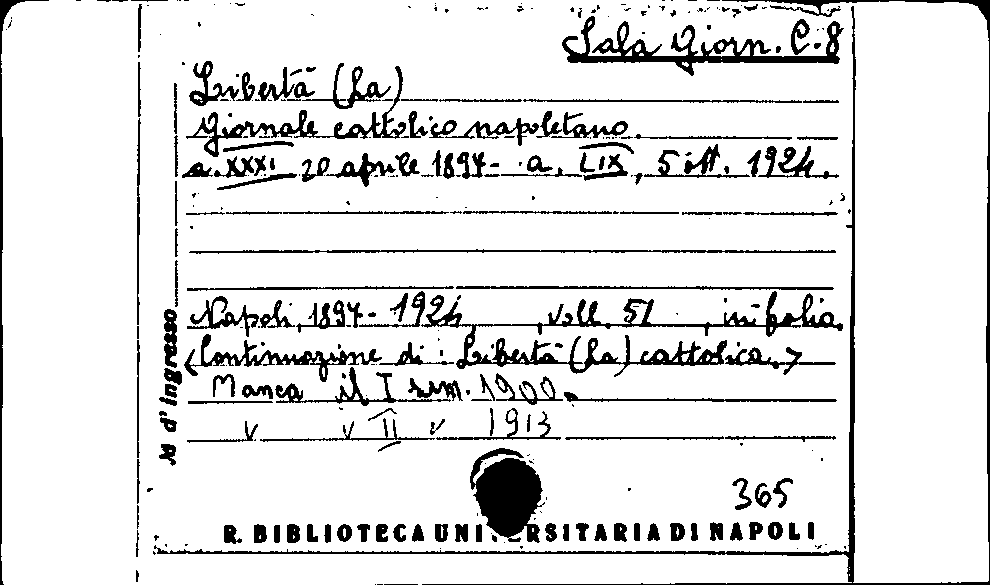 Sala Giorn. C.8
Libertà (La)
Giornale cattolico napoletano.
a. XXXI 20 aprile 1897- a. LIX, 5 ott. 1924.
Napoli, 1897- 1924, voll. 51, in folio.
<Continuazione di: Libertà (La) cattolica.>
Manca il I sem. 1900.
v v II v 1913
365
N d'ingresso
R. BIBLIOTECA UNIVERSITARIA DI NAPOLI